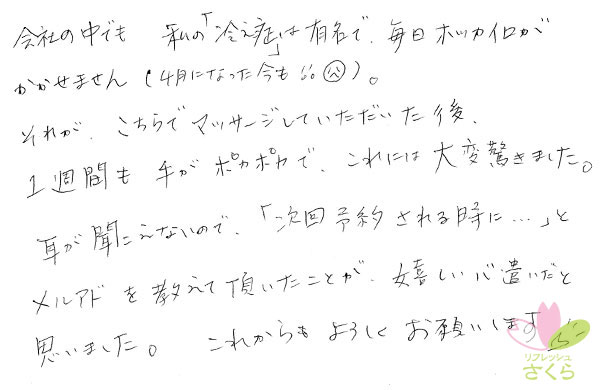 会社の中でも 私の「冷え症」は有名で、毎日ホッカイロが
かかせません(4月になった今も。。)。
それが、こちらでマッサージしていただいた後、
1週間も手がポカポカで、これには大変驚きました。
耳が聞こえないので、「次回予約される時に…」と
メルアドを教えて頂いたことが、嬉しい心遣いだと
思いました。 これからもよろしくお願いします
リフレッシュ
さくら